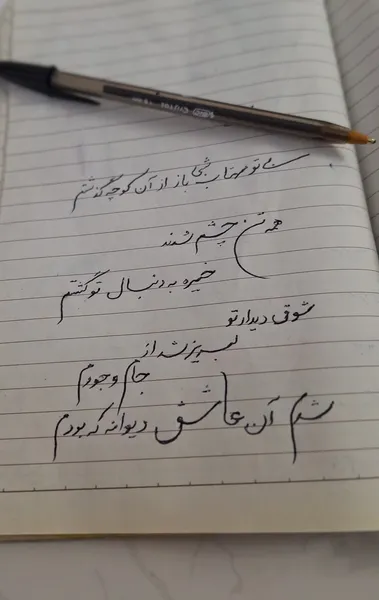 بی تو مهتاب شبی باز از آن کوچه گذشتم
همه تن چشم شدم
خیره به دنبال تو گشتم
شوق دیدار تو
لبریز شد از
جام وجودم
شدم آن عاشق دیوانه که بودم